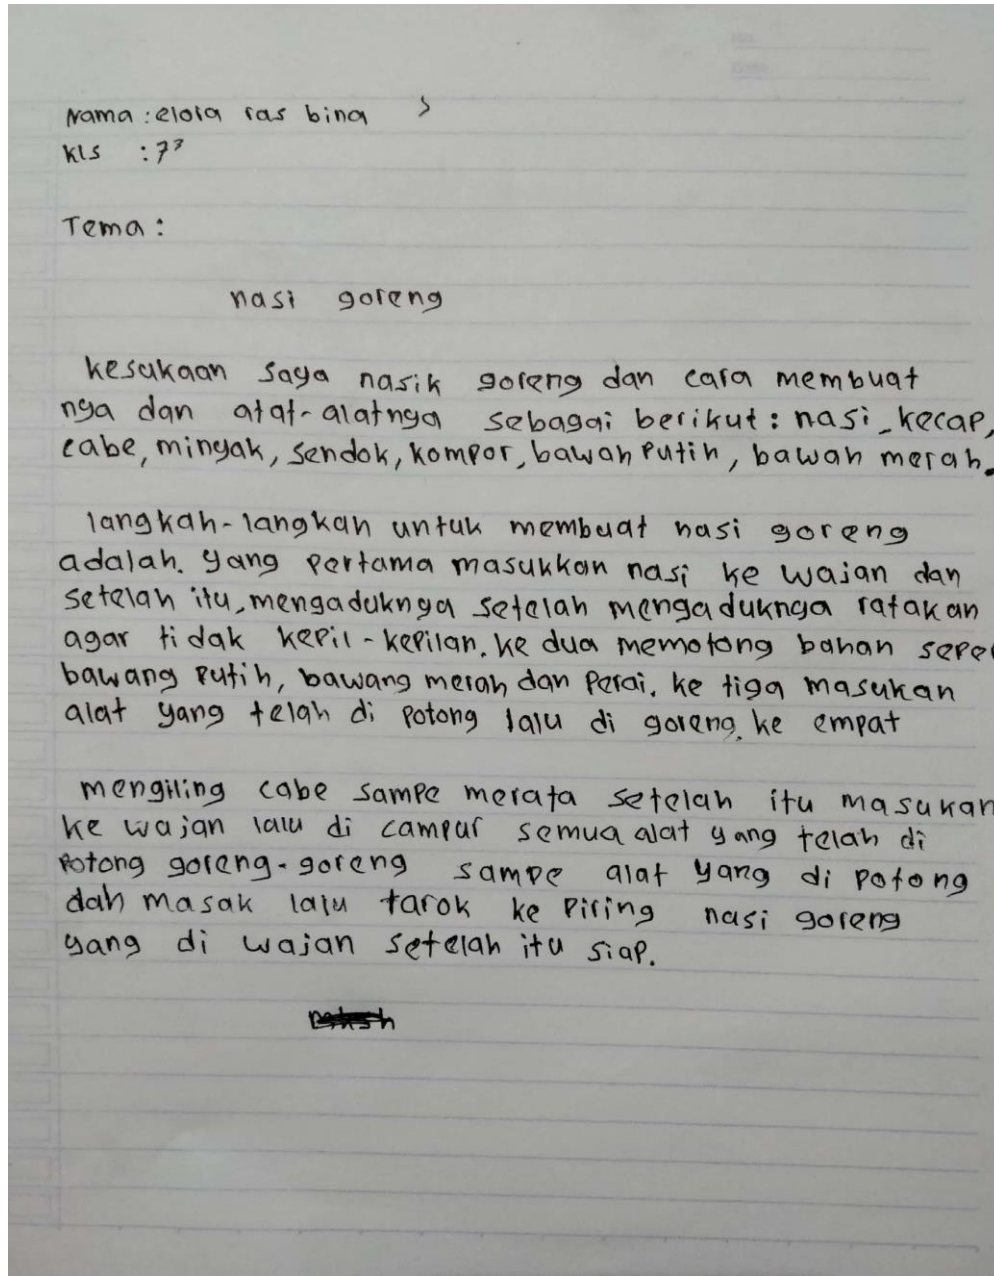 Nama : elora ras bina
Kls : 7³
Tema :
nasi goreng
kesukaan saya nasik goreng dan cara membuat
nya dan atat-alatnya sebagai berikut : nasi, kecap,
cabe, minyak, sendok, kompor, bawah Putih, bawah merah.
langkah-langkah untuk membuat nasi goreng
adalah. yang pertama masukkan nasi ke wajan dan
setelah itu, mengaduknya setelah mengaduknya ratakan
agar tidak kepil-kepilan. ke dua memotong bahan sepe
bawang Putih, bawang merah dan Perai. ke tiga masukan
alat yang telah di potong lalu di goreng. ke empat
mengiling cabe sampe merata setelah itu masukan
ke wajan lalu di campur semua alat yang telah di
Potong goreng-goreng sampe alat yang di potong
dah masak lalu tarok ke Piring nasi goreng
yang di wajan setelah itu siap.